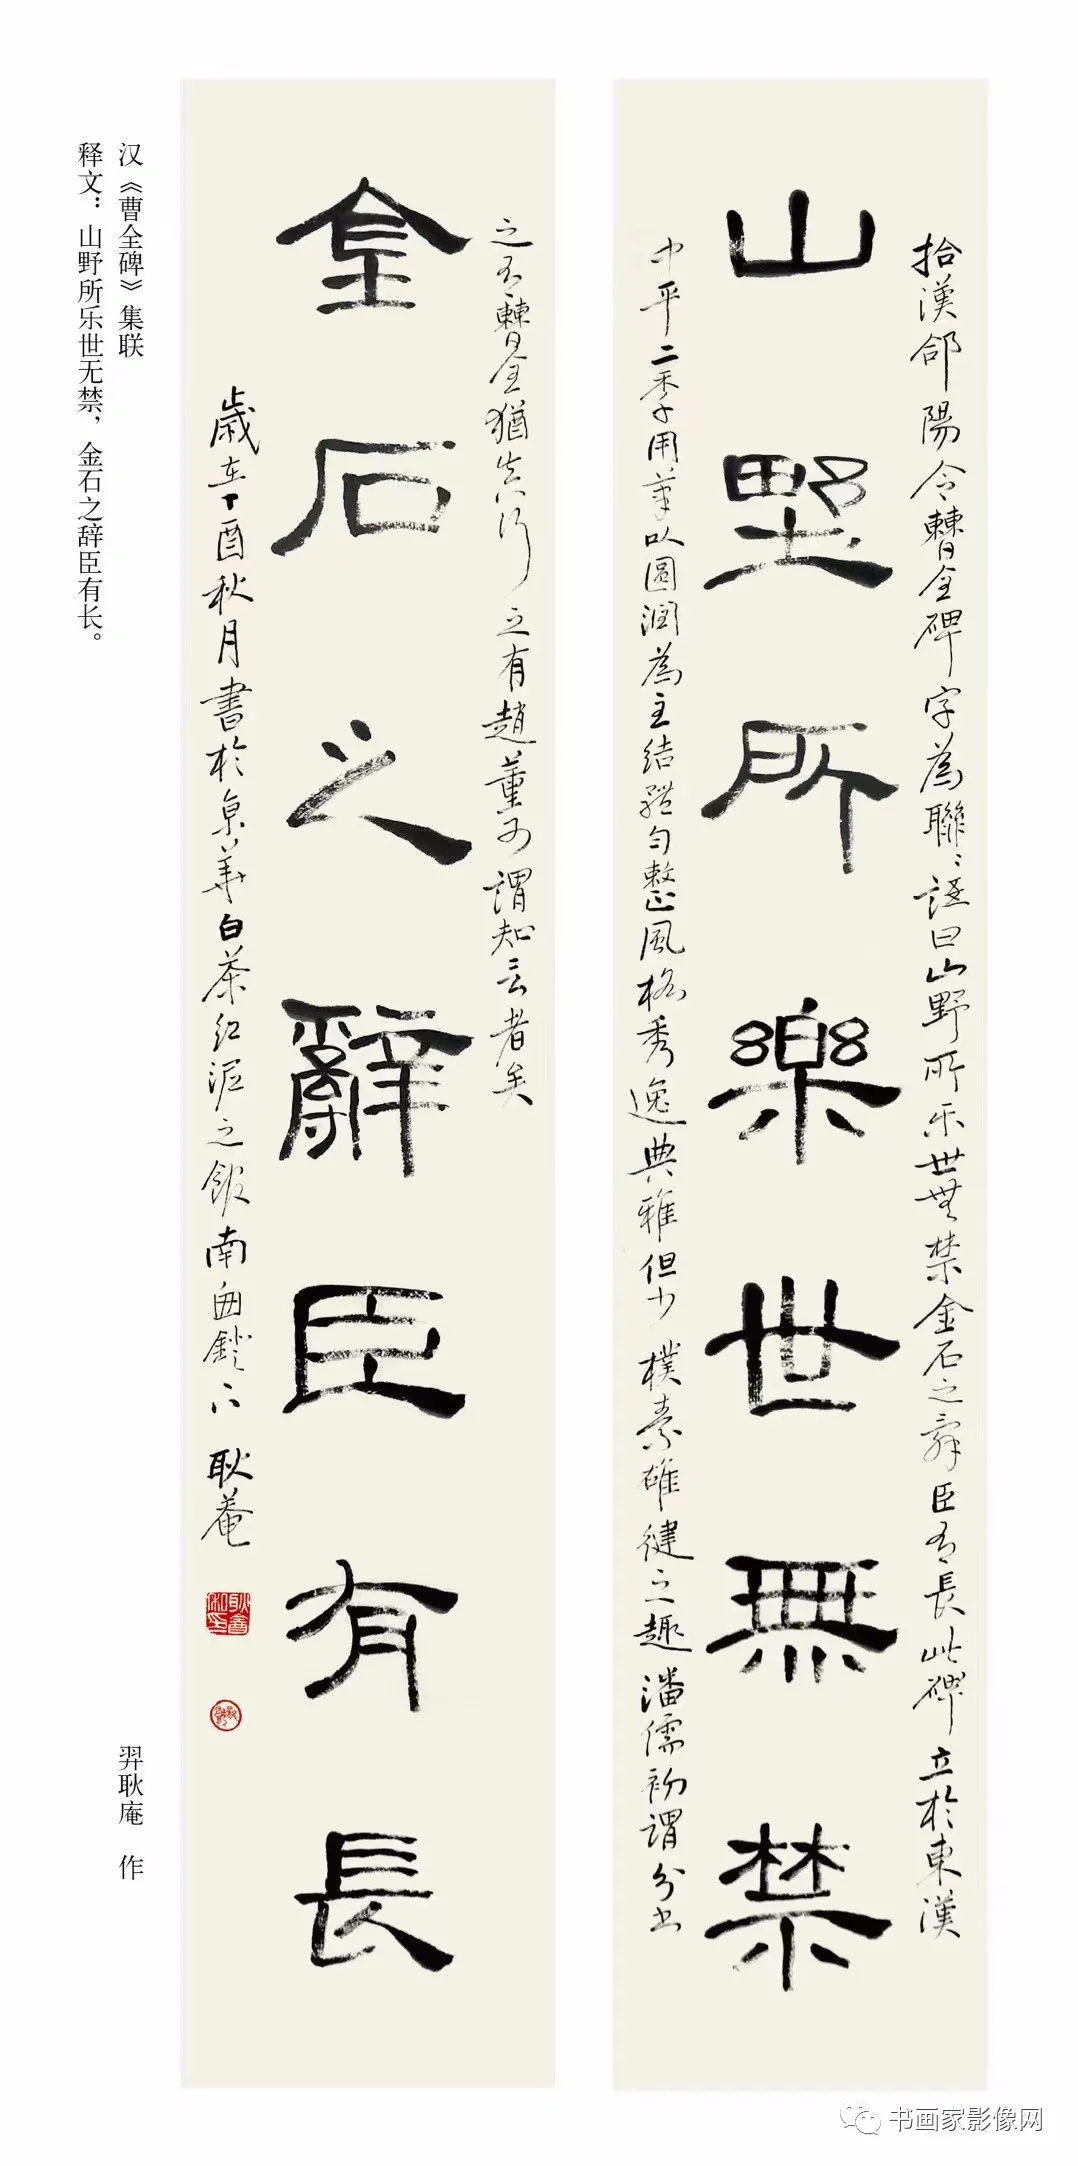 山野所樂世無禁
拾漢郃陽令曹全碑字為聯聯語曰山野所乐世無禁金石之辞臣有長此碑立於東漢
中平二季用筆以圓潤為主結體勻整風格秀逸典雅但少樸素雄健之趣潘儒初謂分書
之有曹全猶真行之有趙董可謂知言者矣
金石之辭臣有長
歲在丁酉秋月書於京華白茶紅泥之館南窗鐙下 耿菴
汉《曹全碑》集联
释文：山野所乐世无禁，金石之辞臣有长。
羿耿庵 作
书画家影像网